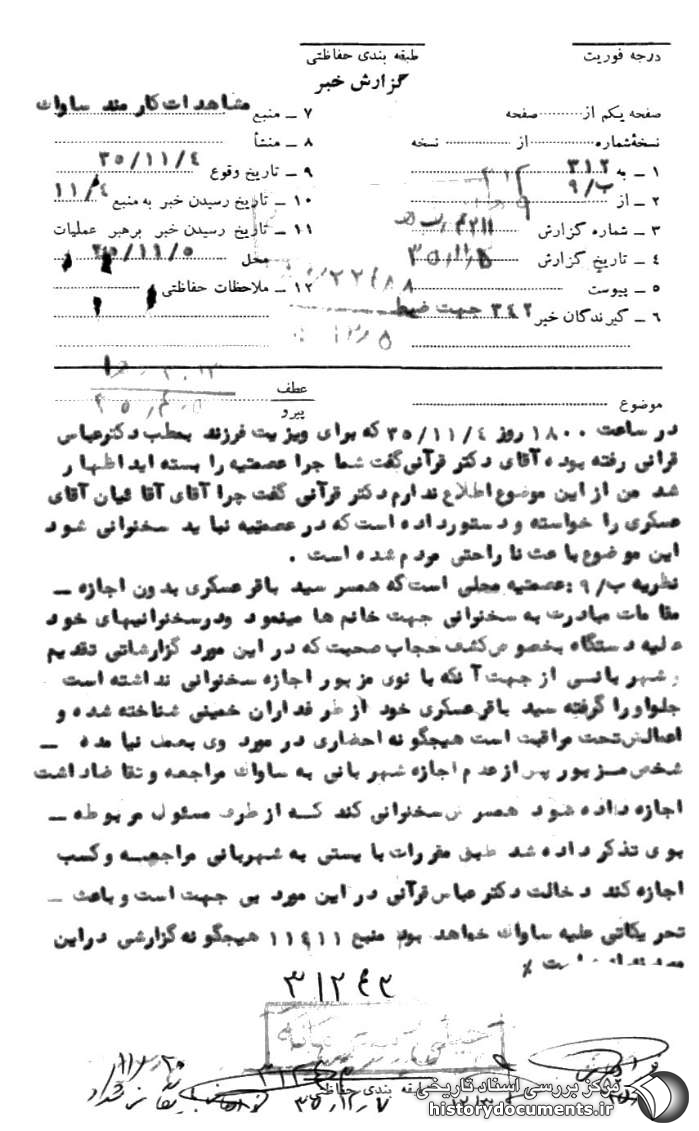 درجه فوریت
طبقه بندی حفاظتی
گزارش خبر
صفحه یکم از صفحه
نسخهٔ شماره از نسخه
۱ ــ به ۳۱۲
۲ ــ از ۹/ب
۳ ــ شماره گزارش
۴ ــ تاریخ گزارش
۵ ــ پیوست
۶ ــ گیرندگان خبر ۳۴۲ جهت ضبط
۷ ــ منبع مشاهدات کارمند ساواک
۸ ــ منشأ
۹ ــ تاریخ وقوع ۳۵/۱۱/۴
۱۰ ــ تاریخ رسیدن خبر به منبع ۱۱/۴
۱۱ ــ تاریخ رسیدن خبر برهبر عملیات
محل ۳۵/۱۱/۵
۱۲ ــ ملاحظات حفاظتی
موضوع
عطف
پیرو
در ساعت ۱۸۰۰ روز ۳۵/۱۱/۴ که برای ویزیت فرزند بمطب دکتر عباس
قرانی رفته بوده آقای دکتر قرآنی گفت شما چرا عصمتیه را بسته اید اظهار
شد من از این موضوع اطلاع ندارم دکتر قرآنی گفت چرا آقای آقائیان آقای
عسکری را خواسته و دستور داده است که در عصمتیه نباید سخنرانی شود
این موضوع باعث ناراحتی مردم شده است .
نظریه ب/۹ : عصمتیه محلی است که همسر سید باقر عسکری بدون اجازه ــ
مقامات مبادرت به سخنرانی جهت خانم ها مینمود ودرسخنرانیهای خود
علیه دستگاه بخصوص کشف حجاب صحبت که در این مورد گزارشاتی تقدیم
و شهربانی از جهت آنکه بانوی مزبور اجازه سخنرانی نداشته است
جلو او را گرفته سید باقر عسکری خود از طرفداران خمینی شناخته شده و
اعمالش تحت مراقبت است هیچگونه احضاری در مورد وی بعمل نیامده ــ
شخص مزبور پس از عدم اجازه شهربانی به ساواک مراجعه و تقاضا داشت
اجازه داده شود همسرش سخنرانی کند کــه از طرف مسئول مربوطه ــ
بوی تذکر داده شد طبق مقررات بایستی به شهربانی مراجعــه و کسب
اجازه کند دخالت دکتر عباس قرآنی در این مورد بی جهت است و باعث ــ
تحریکاتی علیه ساواک خواهد بود منبع ۱۱۴۱۱ هیچگونه گزارشی دراین
۳۱۲۴۳
طبقه بندی حفاظتی
۳۵/۱۲/۷
مرکز بررسی اسناد تاریخی
historydocuments.ir